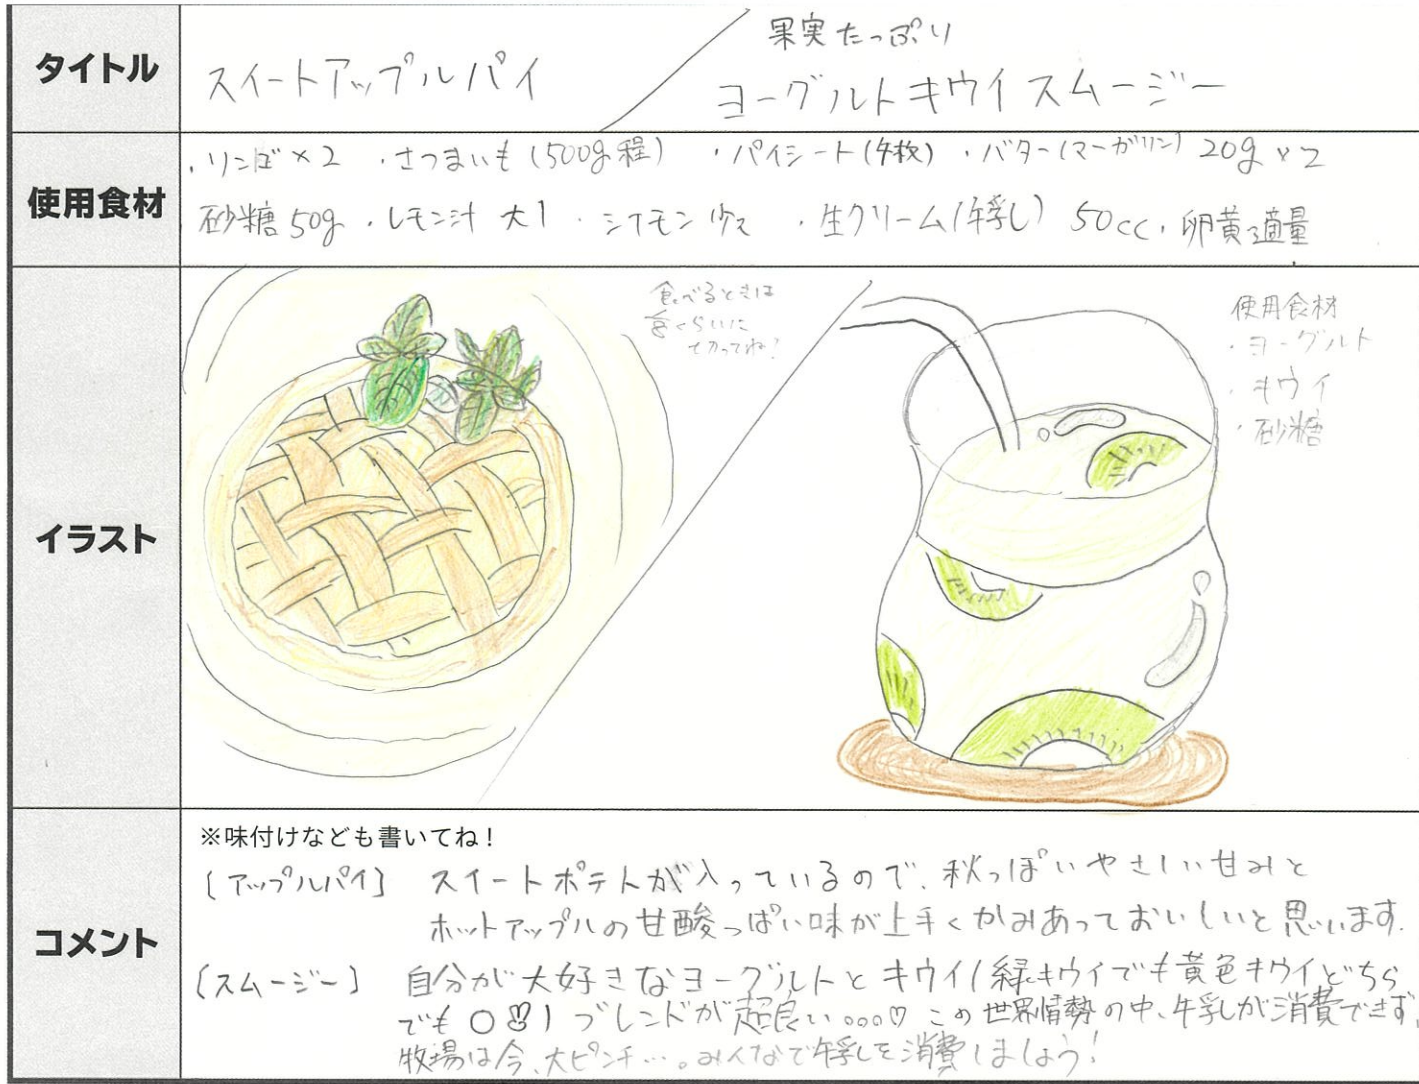 タイトル
スイートアップルパイ
果実たっぷり
ヨーグルトキウイスムージー
使用食材
・リンゴ×2 ・さつまいも(500g程) ・パイシート(4枚) ・バター(マーガリン) 20g×2
砂糖50g ・レモン汁 大1 ・シナモン 少々 ・生クリーム(牛乳) 50cc ・卵黄適量
イラスト
食べるときは
くらいに
切ってね!
使用食材
・ヨーグルト
・キウイ
・砂糖
コメント
※味付けなども書いてね!
[アップルパイ] スイートポテトが入っているので、秋っぽいやさしい甘みと
ホットアップルの甘酸っぱい味が上手くかみあっておいしいと思います.
[スムージー] 自分が大好きなヨーグルトとキウイ(緑キウイでも黄色キウイどちら
でも○) ブレンドが超良い...♡ この世界情勢の中、牛乳が消費できず、
牧場は今、大ピンチ…。みんなで牛乳を消費しましょう!